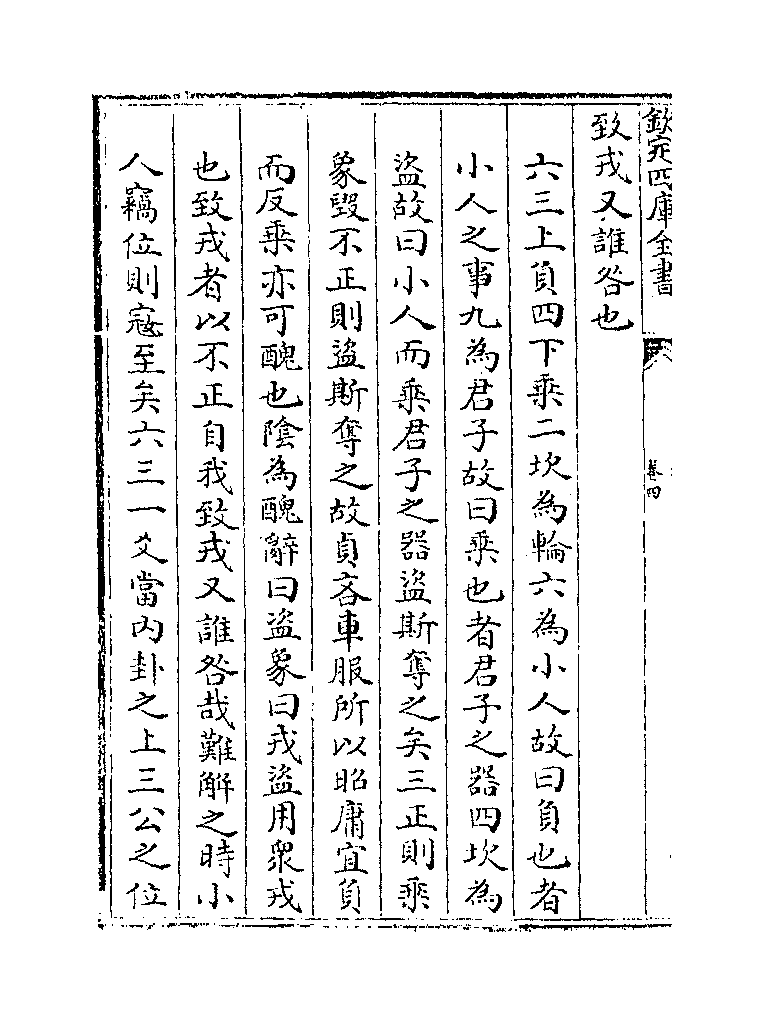 欽定四庫全書
卷四
致戎又誰咎也
六三上負四下乘二坎為輪六為小人故曰負也者
小人之事九為君子故曰乘也者君子之器四坎為
盜故曰小人而乘君子之器盜斯奪之矣三正則乘
象毀不正則盜斯奪之故貞吝車服所以昭庸宜負
而反乘亦可醜也陰為醜辭曰盜象曰戎盜用衆戎
也致戎者以不正自我致戎又誰咎哉難解之時小
人竊位則寇至矣六三一爻當內卦之上三公之位